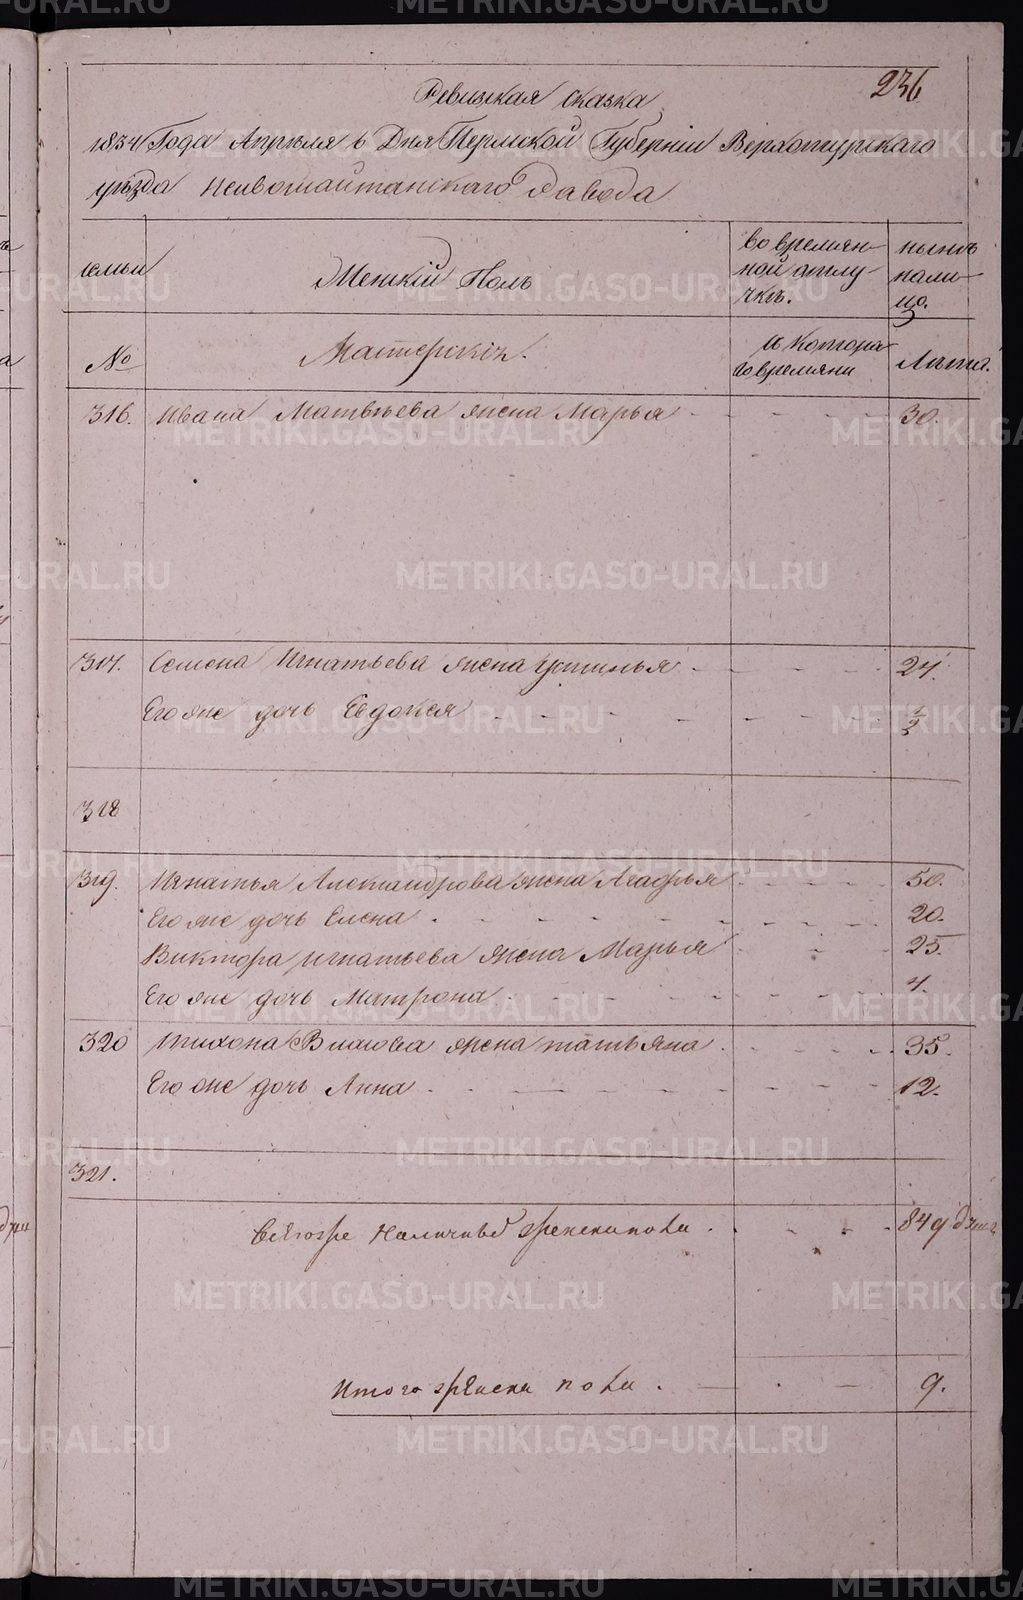 236
Ревизкая сказка
1834 Года Апреля 6 Дня Пермской Губернии Верхотурского
уезда Невьошайтанскаго Завода
семьи
Женскiй Полъ
во времян-
ной отлу-
чкъ.
нынъ
нали-
цо.
№
Мастерскiя.
с котора
го времяни
Лъта.
316. Ивана Матвъева жена Марья 30.
317. Семена Игнатьева жена Устинья 27.
Его же дочь Евдокея 1/2
318
319. Игнатья Александрова жена Агафья 50.
Его же дочь Елена 20.
Виктора Игнатьева жена Марья 25.
Его же дочь Матрона 4.
320 Тихона Власова жена татьяна 35.
Его же дочь Анна 12.
321.
Наличнаго женска пола 849 душъ
Итого женска пола 9.
METRIKI.GASO-URAL.RU